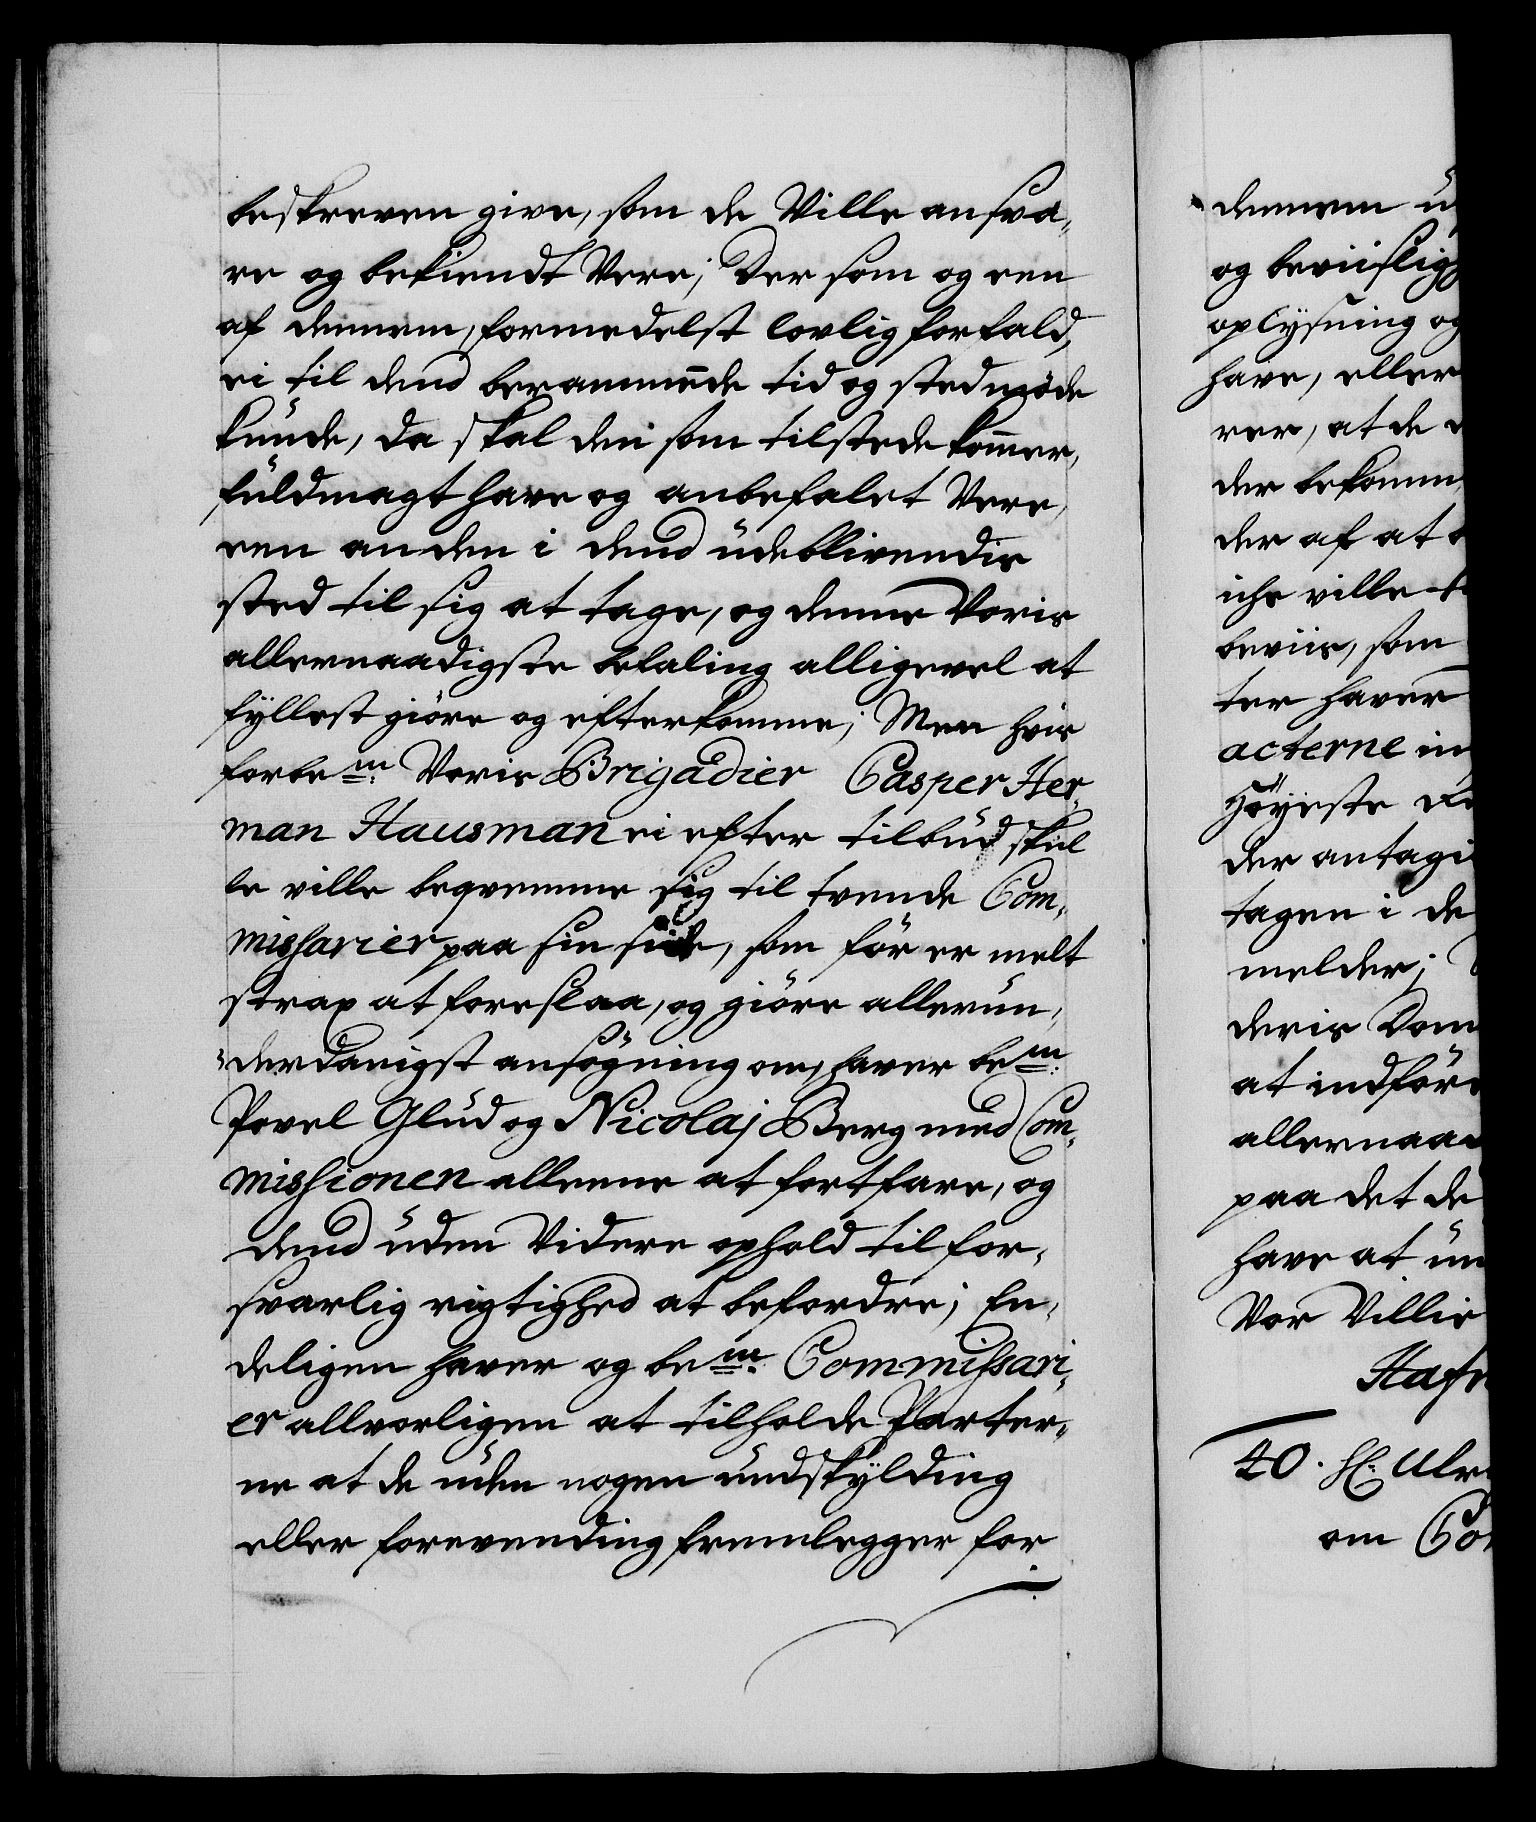 beskreven give, som de Ville ansva,,
re og bekiendt Vere; Der som og een
af dennem, formedelst lovlig forfald,
ei til dend berammede tid og sted møde
kunde, da skal den som tilstede kommer,
fuldmagt have og anbefalet Vere,
een anden i dend udeblivendis
sted til sig at tage, og denne Voris
allernaadigste befaling alligevel at
fyllest giöre og efterkomme; Men hvis
forbem.te Voris Brigadier Casper Her,,
man Hausman ei efter tilbud skul
le ville beqvemme sig til tvende Com,,
missarier paa sin side, som för er melt
strax at foreslaa, og giöre allerun,,
derdanigst ansögning om, haver bem.te
Povel Glud og Nicolaj Berg med Com,,
missionen alleene at fortfare, og
dend uden Videre ophold til for,,
svarlig rigtighed at befordre; En,,
deligen haver og bem.te Commissari,,
er allvorligen at tilholde Parter,,
ne at de uden nogen undskylding
eller forevending fremlegger for
dennem u
og beviislig
oplysning og
have, eller
rer, at de
der bekomm
der af at
ichr ville
beviis, som
ter haver
acterne in
Höyeste Re
der antagi
tagen i de
melder;
deris Dom
at indföre
allernaa
paa det de
have at un
Vor Villie
Hafn
40. H: Ulr
om Co